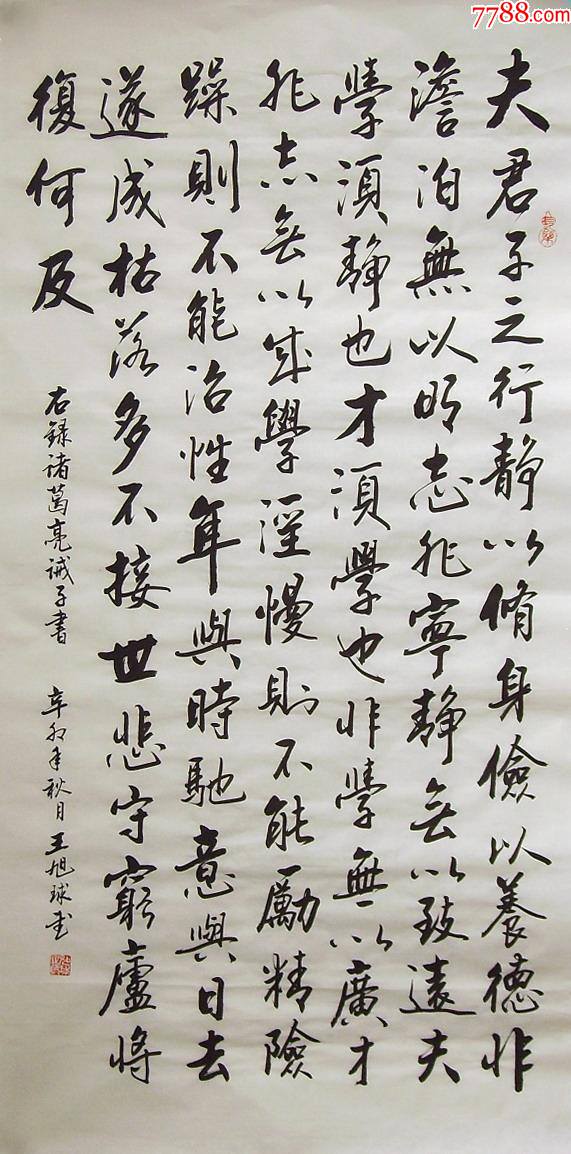 7788.com
夫君子之行静以脩身儉以養德非
澹泊無以明志非寧静無以致遠夫
學須静也才須學也非學無以廣才
非志無以成學淫慢則不能勵精險
躁則不能治性年與時馳意與日去
遂成枯落多不接世悲守窮廬將
復何及
右録諸葛亮诫子書 辛卯年秋月 王旭球书